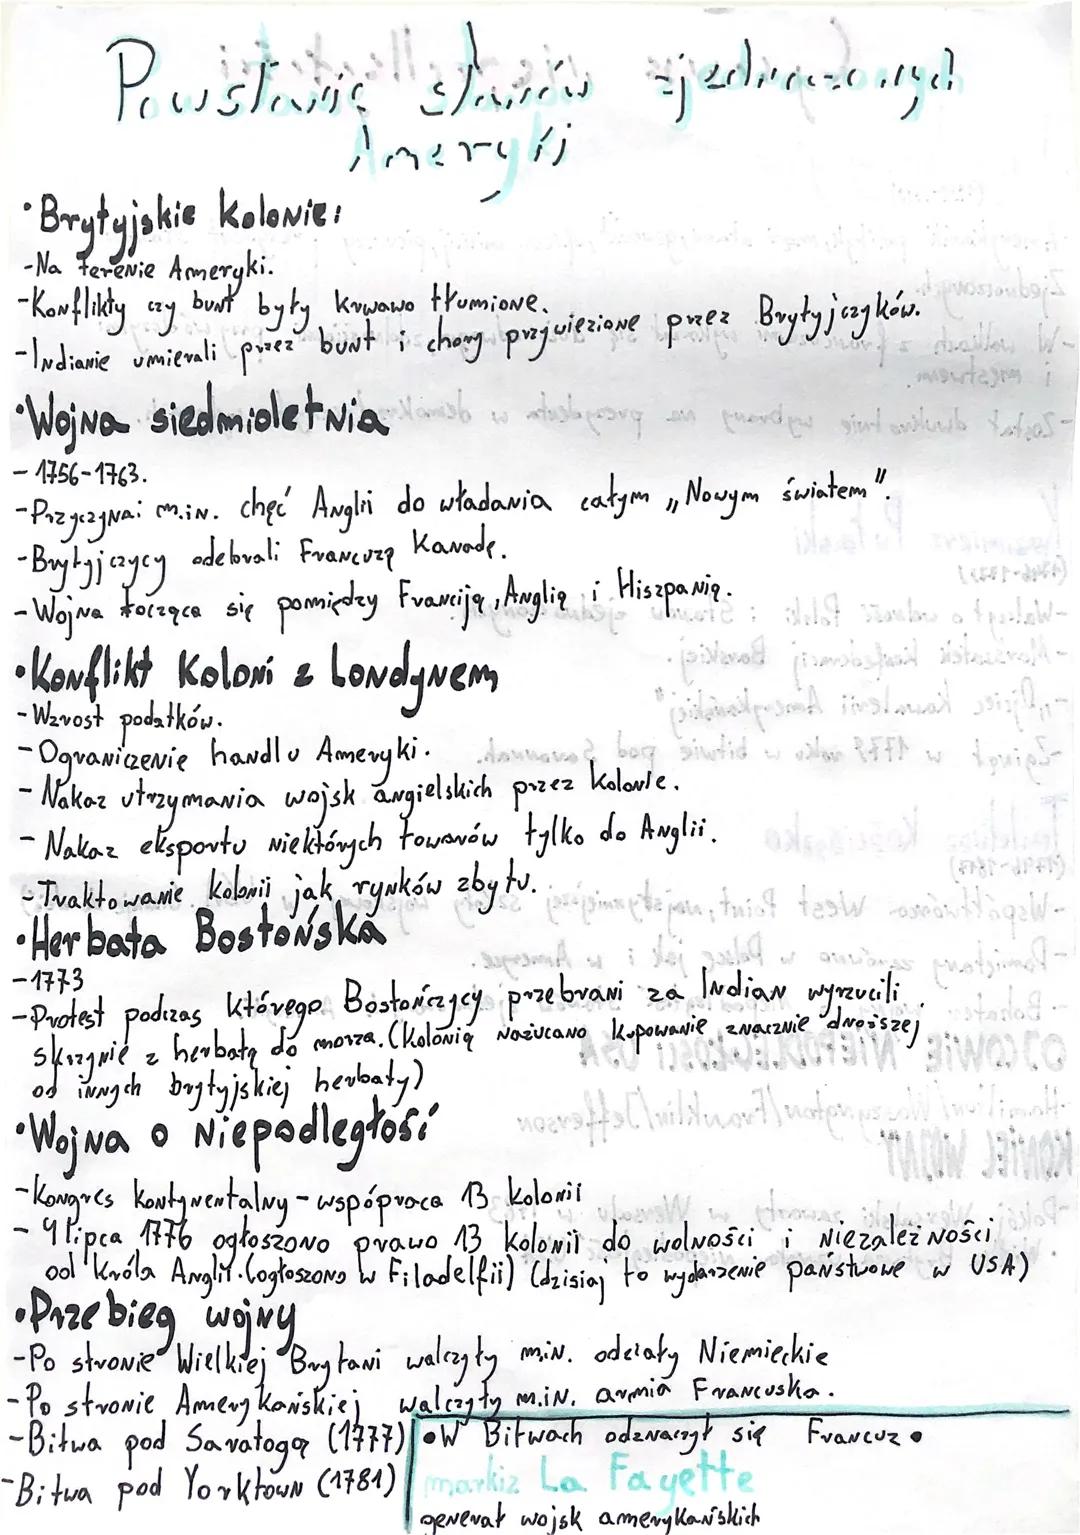 Powstanie stanów zjednoczonych
Ameryki
•Brytyjskie kolonie:
-Na terenie Ameryki.
-Konflikty czy bunt były krwawo tłumione.
-Indianie umierali przez bunt i chory przywiezione przez Brytyjczyków.
•Wojna siedmioletnia
- 1756-1763.
-Przyczyna: m.in. chęć Anglii do władania całym „Nowym światem".
-Brytyjczycy odebrali Francuzą Kanadę.
-Wojna tocząca się pomiędzy Francją, Anglią i Hiszpanią.
•Konflikt Koloni z Londynem
-Wzrost podatków.
-Ograniczenie handlu Ameryki.
-Nakaz utrzymania wojsk angielskich przez kolonie.
-Nakaz eksportu niektórych towarów tylko do Anglii.
-Traktowanie kolonii jak rynków zbytu.
•Herbata Bostońska
-1773
-Protest podczas którego Bostończycy przebrani za Indian wyrzucili
skrzynie z herbatą do morza. (Kolonią nażucano kupowanie znacznie droższej
od innych brytyjskiej herbaty)
•Wojna o niepodległość
-Kongres kontynentalny - wspópraca 13 kolonii
- 4 lipca 1776 ogłoszono prawo 13 kolonii do wolności i niezależności
od króla Anglii. (ogłoszono w Filadelfii) (dzisiaj to wydarzenie państwowe w USA)
•Przebieg wojny
-Po stronie Wielkiej Brytani walczyły m.in. odziały Niemieckie
-Po stronie Amerykańskiej walczyły m.in. armia Francuska.
-Bitwa pod Saratogą (1777)
-Bitwa pod Yorktown (1781)
•W Bitwach odznaczył się Francuz •
markiz La Fayette
generał wojsk amerykańskich